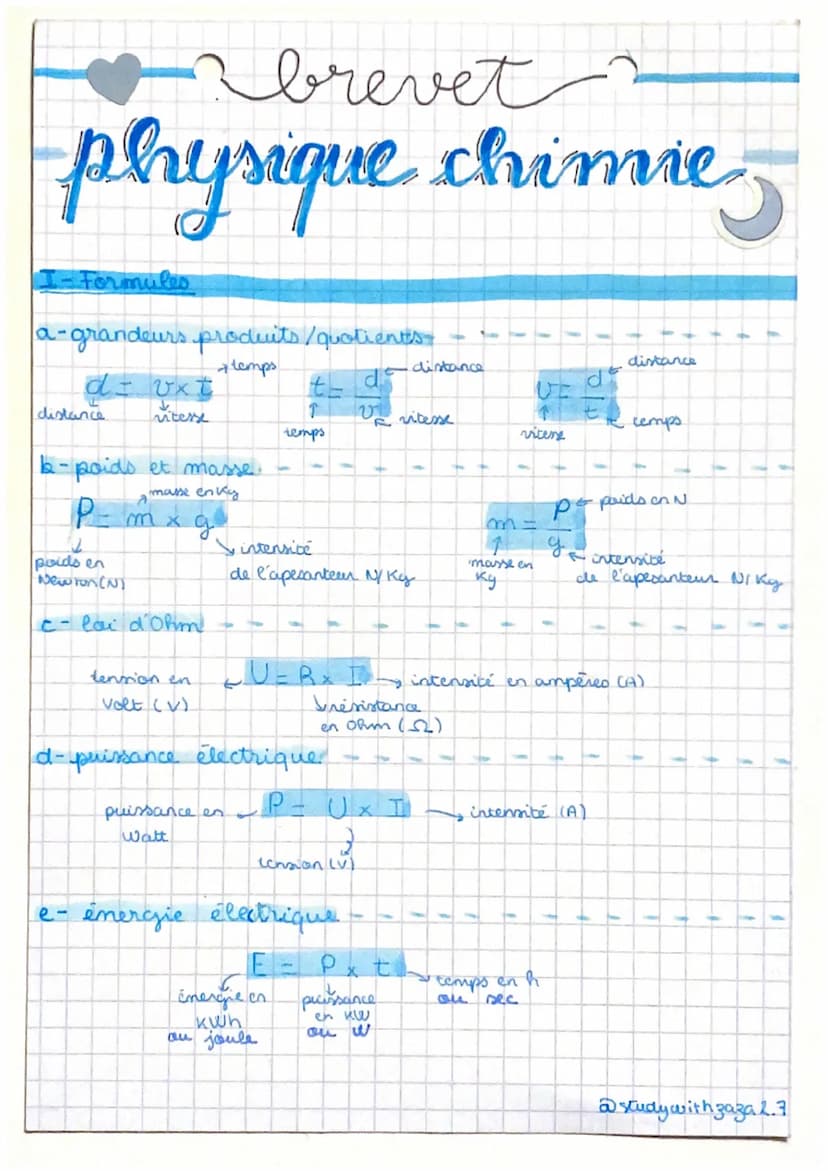 brevet
physique chimie
I - Formules
a - grandeurs produits / quotients
d = v x t
temps
distance
vitesse
t = d / v
distance
temps
vitesse
v = d / t
distance
vitesse
temps
b - poids et masse
P = m x g
masse en Kg
poids en
Newton (N)
intensité
de l'apesanteur N/Kg
m = P / g
poids en N
masse en
Kg
intensité
de l'apesanteur N/Kg
c - loi d'Ohm
tension en
Volt (V)
U = R x I
intensité en ampères (A)
résistance
en Ohm (Ω)
d - puissance électrique
puissance en
Watt
P = U x I
intensité (A)
tension (V)
e - énergie électrique
E = P x t
énergie en
KWh
ou joule
puissance
en KW
ou W
temps en h
ou sec
@studywithzaza2.7